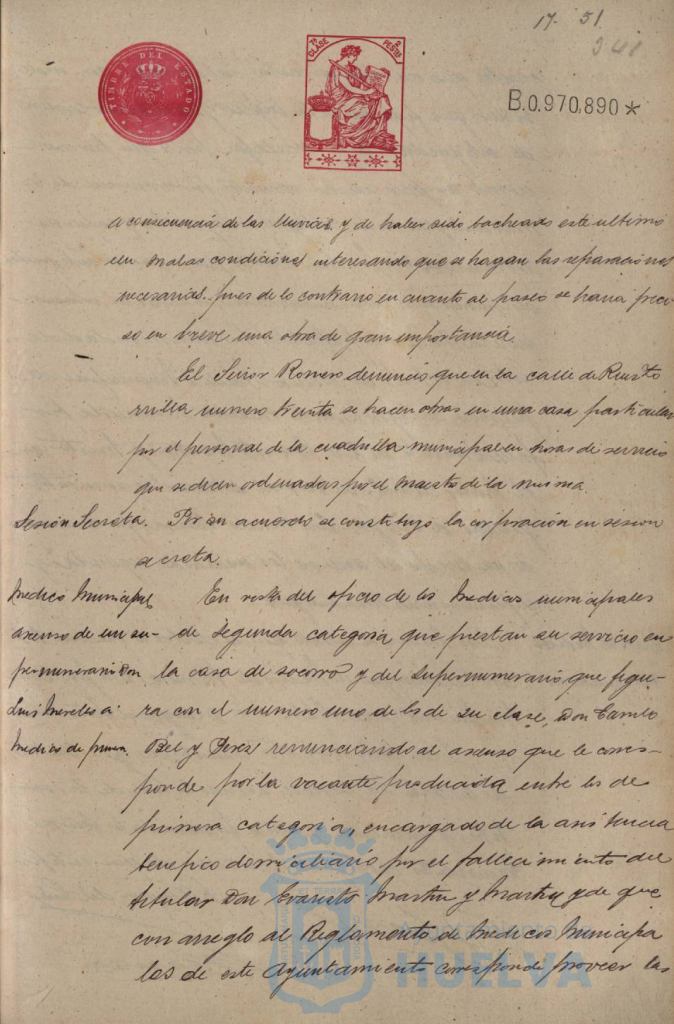 17. 51
341
TIMBRE DEL ESTADO
7ª CLASE 2 PESETAS
B.0.970.890*
a consecuencia de las lluvias y de haber sido bacheado este ultimo
en malas condiciones interesando que se hagan las reparaciones
necesarias, pues de lo contrario en cuanto al paseo se haria preci-
so en breve una obra de gran importancia.
El Señor Romero denunció que en la calle de
numero treinta se hacen obras en una casa particular
por el personal de la cuadrilla municipal en horas de servicio
que se dicen ordenadas por el maestro de la misma.
Sesión Secreta. Por su acuerdo se constituyó la corporación en sesion
secreta.
Medico Municipal En vista del oficio de los Medicos municipales
ascenso de un su- de segunda categoria que prestan su servicio en
pernumerario Don la casa de socorro y del supernumerario que figu-
Luis a ra con el numero uno de los de su clase, Don Camilo
Medico de Bel y Perez renunciando al ascenso que le corres-
ponde por la vacante producida entre los de
primera categoria, encargado de la asistencia
benefico domiciliario por el fallecimiento del
titular Don Evaristo Martin y Martin y de que
con arreglo al Reglamento de Medicos Municipa
les de este Ayuntamiento corresponde proveer las
HUELVA